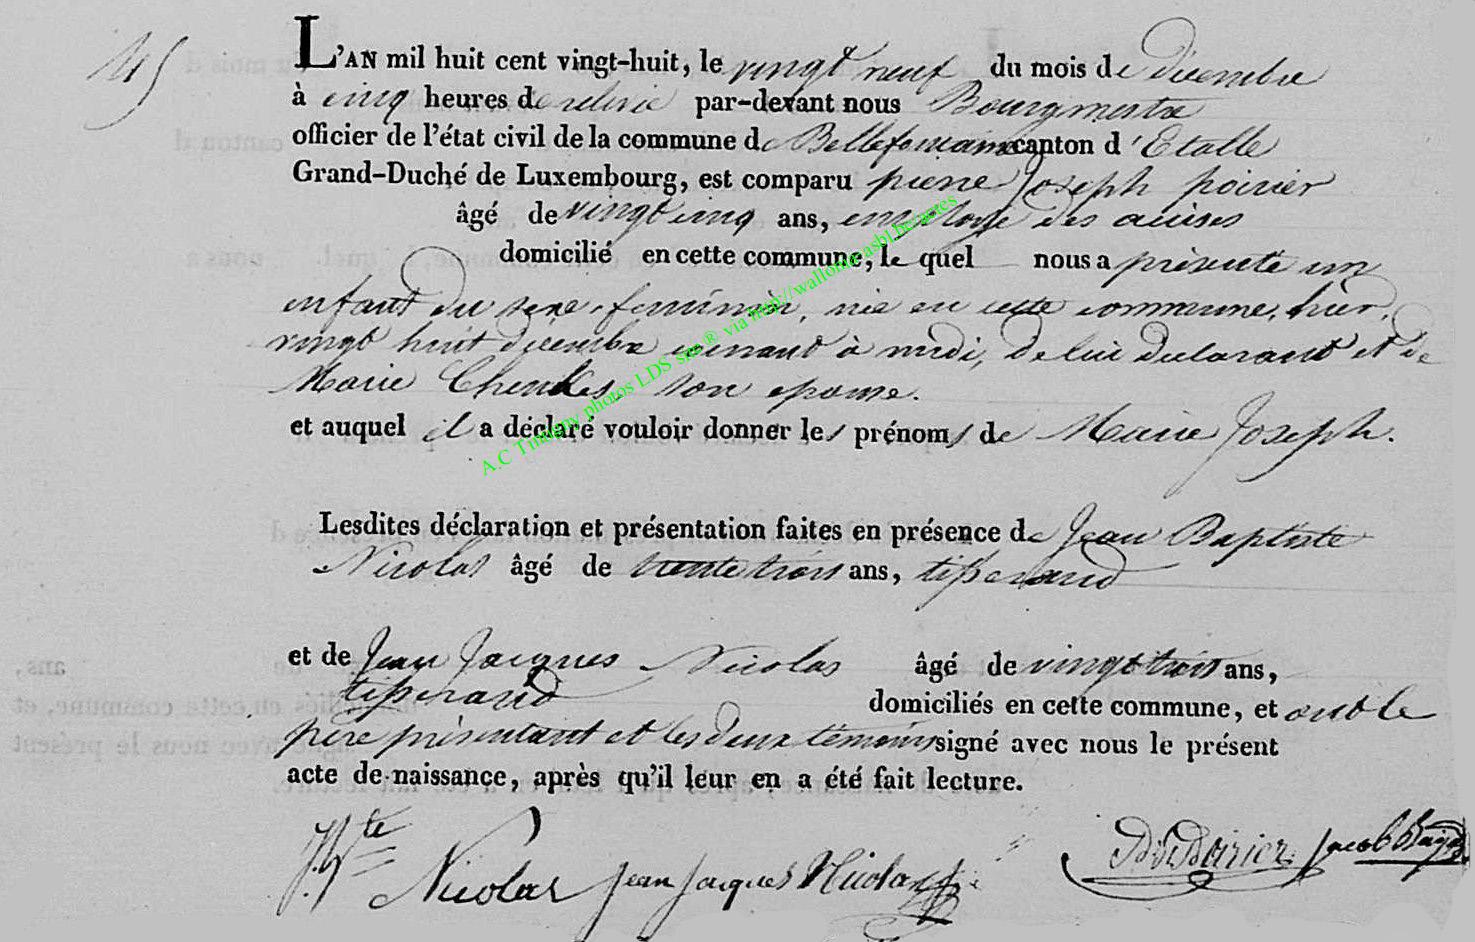 45
L'AN mil huit cent vingt-huit, le vingt neuf du mois de décembre
à cinq heures de relevé par-devant nous Bourgmestre
officier de l'état civil de la commune de Bellefontaine canton d'Etalle
Grand-Duché de Luxembourg, est comparu pierre Joseph poirier
âgé de vingt cinq ans, employé des acises
domicilié en cette commune, le quel nous a présenté un
enfant du sexe féminin, née en cette commune, hier,
vingt huit décembre courant à midi, de lui declarant et de
Marie son epouse.
et auquel il a déclaré vouloir donner les prénoms de Marie Joseph.
Lesdites déclaration et présentation faites en présence de Jean Baptiste
Nicolas âgé de trente trois ans, tisserand
et de Jean Jacques Nicolas âgé de vingt trois ans,
tisserand domiciliés en cette commune, et ont le
père présentant et les deux témoins signé avec nous le présent
acte de naissance, après qu'il leur en a été fait lecture.
J. Bte Nicolas Jean Jacques Nicolas Poirier Jacob
A.C Tmogny photos LDS site ® via http://wallonia-asbl.be/actes